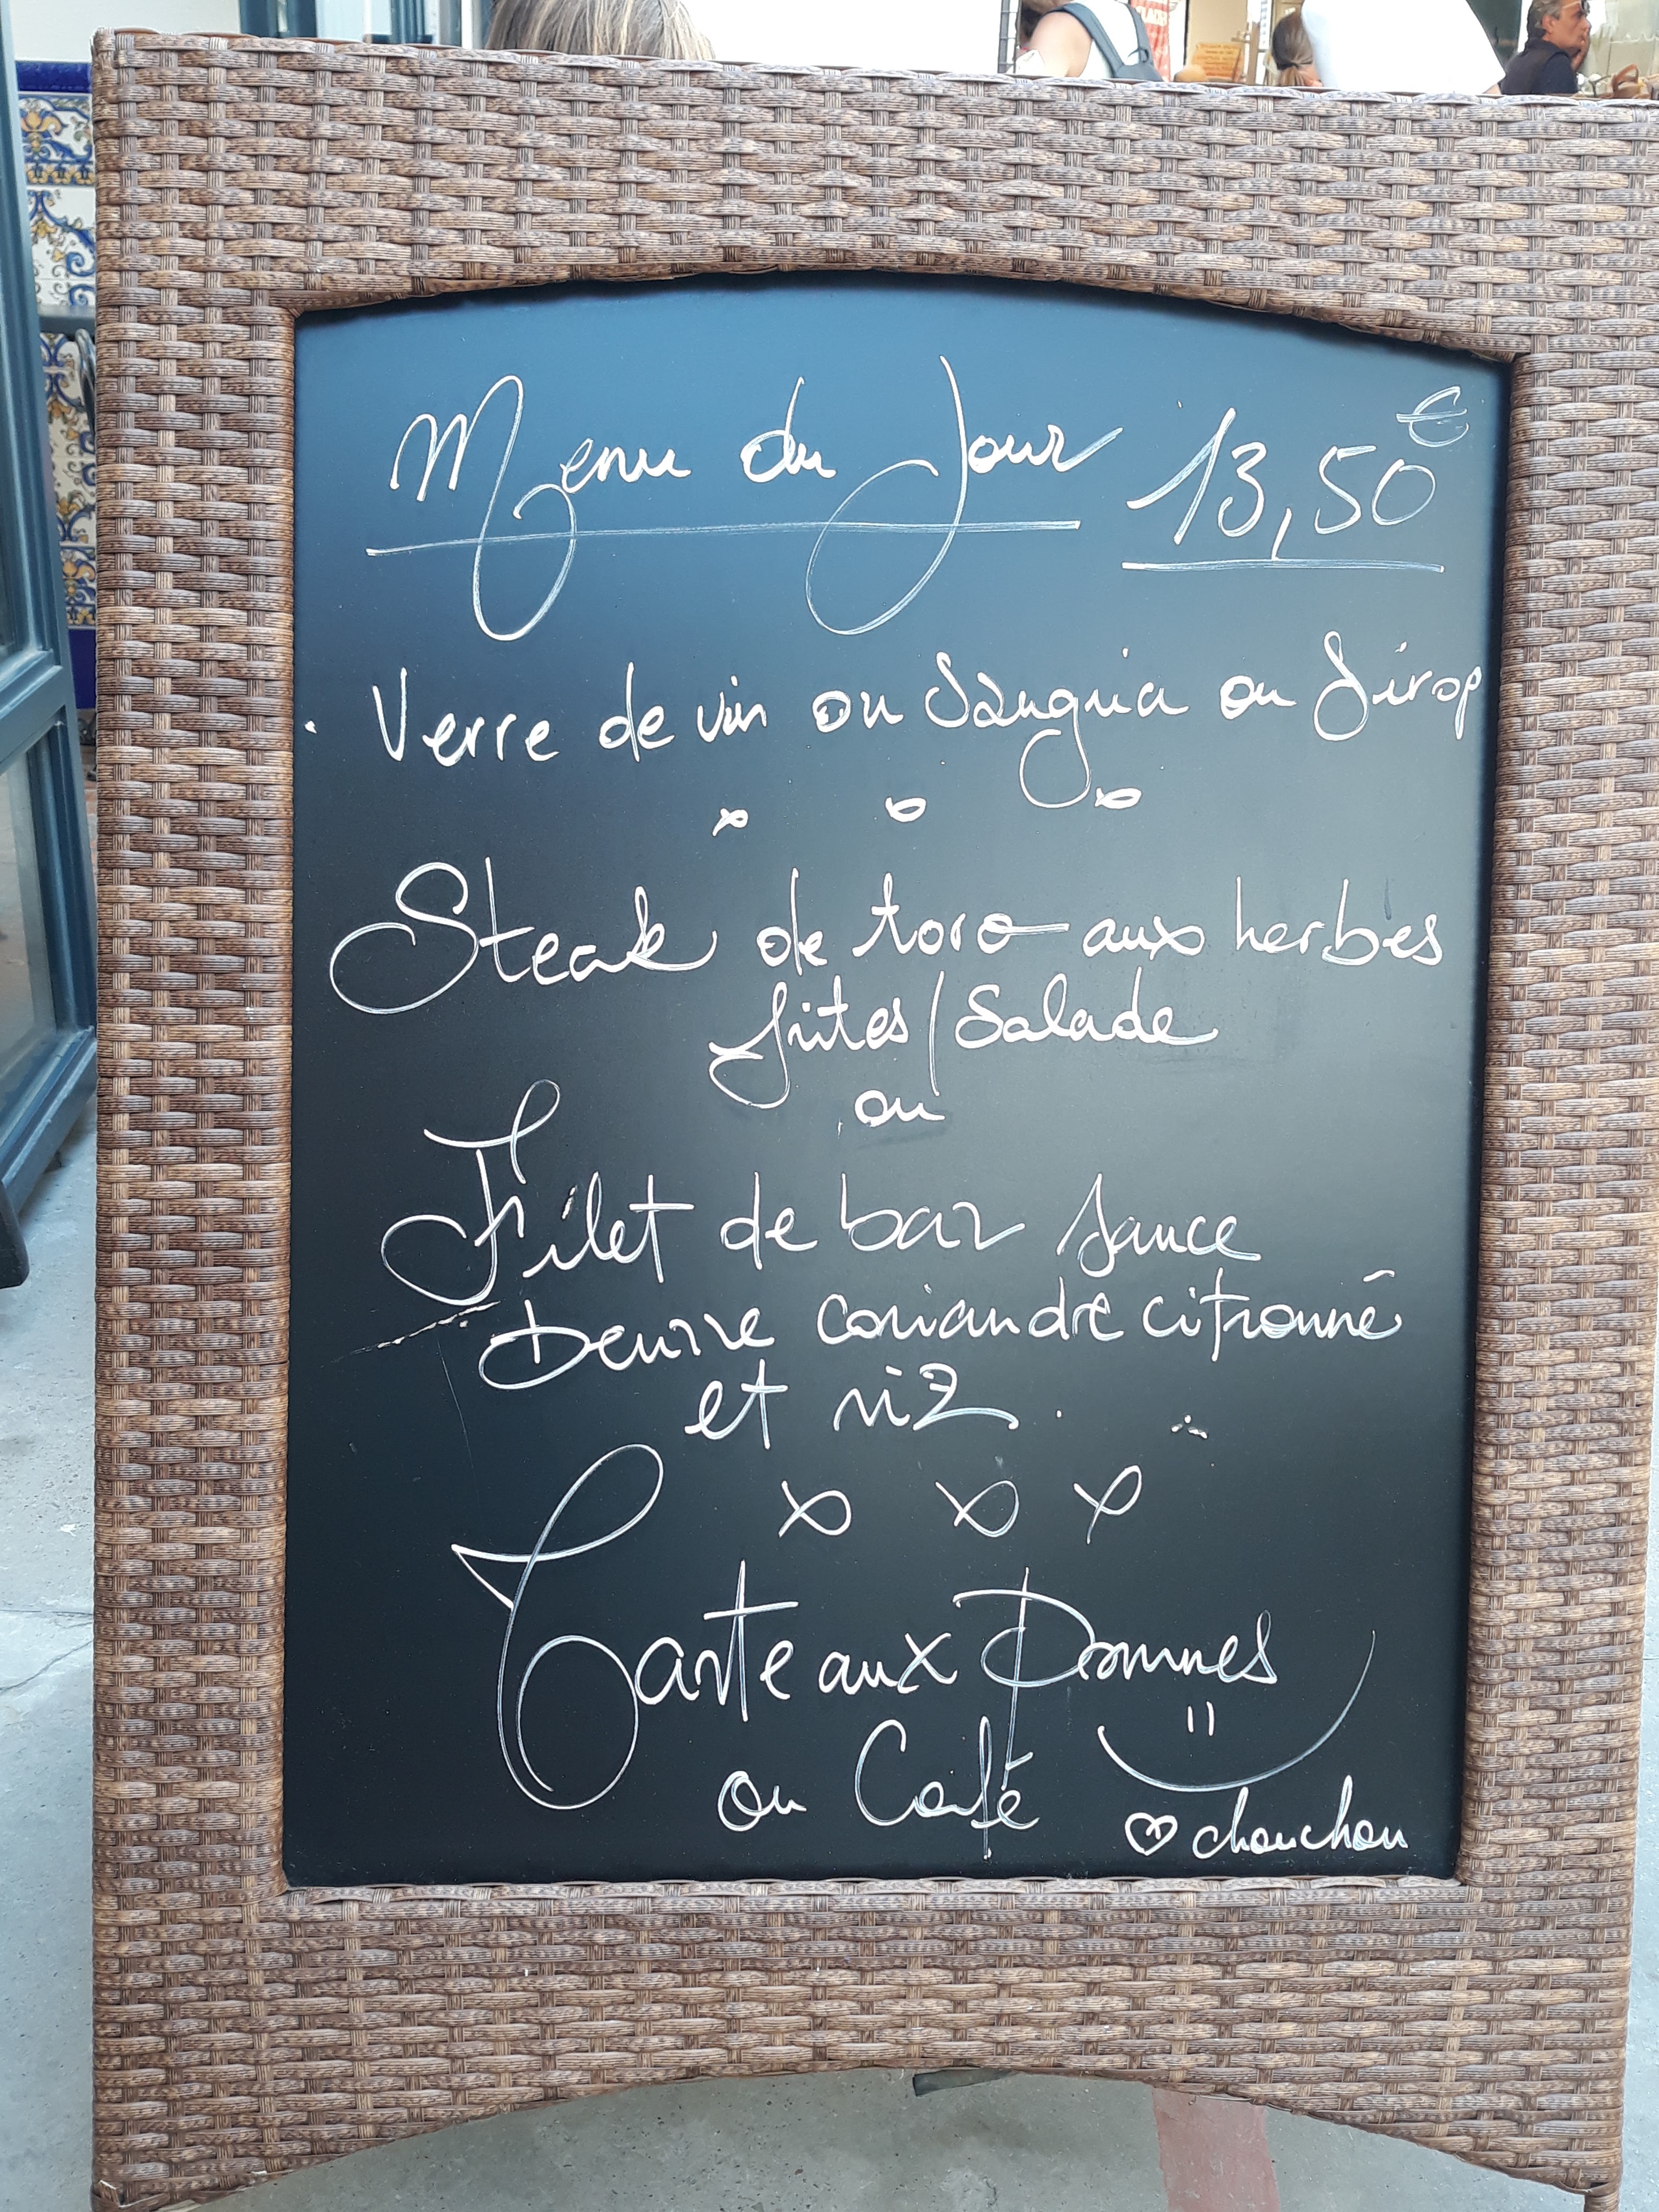 Menu du Jour 13,50€
Verre de vin ou Sangria ou Sirop
Steak de toro aux herbes
frites/Salade
ou
Filet de bar sauce
beurre coriandre citronné
et riz
Tarte aux Pommes
ou Café
chouchou